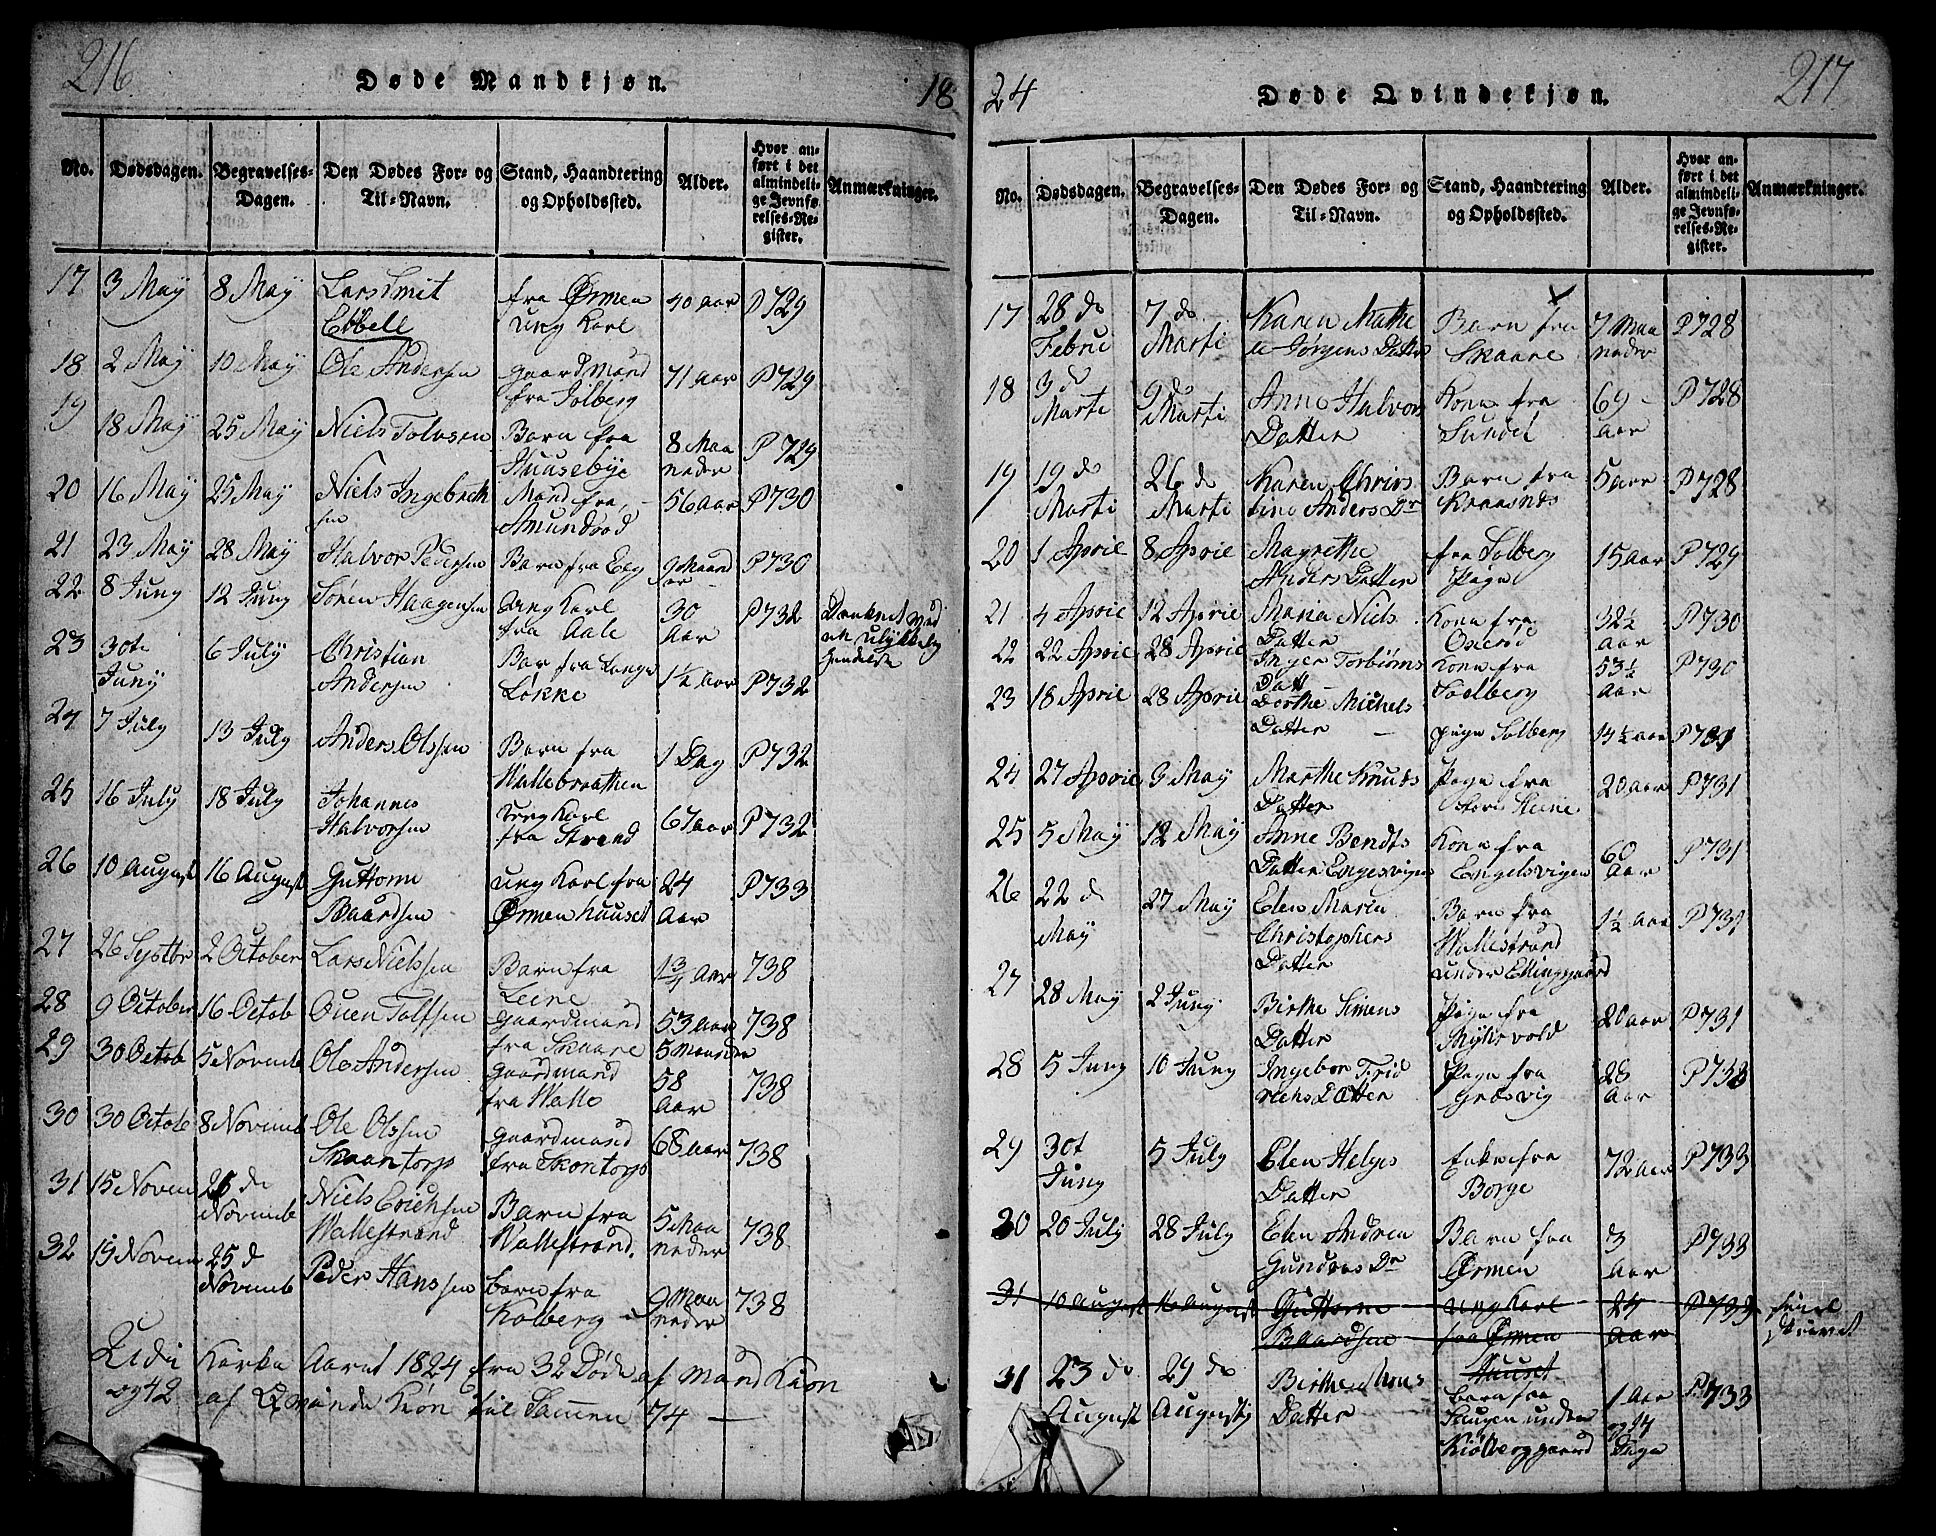 216.
Døde Mandkjøn.
18
No.
Dødsdagen.
Begravelses-Dagen.
Den Dødes For- og Til-Navn.
Stand, Haandtering og Opholdssted.
Alder.
Hvor anført i det almindelige Jevnførelses-Register.
Anmærkninger.
17 3 May 8 May Lars Smit fra Ørmen 40 aar P 729
Ebbell ung Karl
18 2 May 10 May Ole Andersen gaardmand 71 aar P 729
fra Solberg
19 18 May 25 May Niels Tolvsen Barn fra 8 Maa P 729
Huusebye neder
20 16 May 25 May Niels Ingebreth Mand fra 56 aar P 730
sen Amundrød
21 23 May 28 May Halvor Pedersen Barn fra Eeg 9 Maand P 730
22 8 Juny 12 Juny Søren Haagensen Ung Karl 30 P 732
fra Aale Aar
ved en ulykkelig
23 30te 6 July Christian Barn fra Lange 1¼ aar P 732
Juny Andersen Løkke
24 7 July 13 July Anders Olssen Barn fra 1 Dag P 732
Wallebraathen
25 16 July 18 July Johannes Ung Karl 67 aar P 732
Halvorsen fra Strand
26 10 August 16 August Guttorm ung Karl fra 24 P 733
Baardsen Ørmen huuset Aar
27 26 Septbr 2 October Lars Nielssen Barn fra 1¾ aar 738
Leine
28 9 October 16 Octob Ouen Tolfsen gaardmand 53 aar 738
fra Skaare 5 Maander
29 30 Octob 5 Novemb Ole Andersen gaardmand 58 738
fra Walle Aar
30 30 Octob 8 Novemb Ole Olssen gaardmand 68 aar 738
Skaantorp fra Skontorp
31 15 Novem 25 de Niels Erichsen Barn fra 5 Maa 738
Novemb Wallestrand Wallestrand. neder
32 19 Novem 25 d Peder Hanssen barn fra 9 Maa 738
Novemb Kolberg neder
Kirke Aaret 1824 fra 32 Døde af Mand Kion
og 42 af Qvinde Kiøn til Sammen 74 —
24
Døde Qvindekjøn.
217
No.
Dødsdagen.
Begravelses-Dagen.
Den Dødes For- og Til-Navn.
Stand, Haandtering og Opholdssted.
Alder.
Hvor anført i det almindelige Jevnførelses-Register.
Anmærkninger.
17 28 de 7 de Karen Mathe Barn fra 7 Maa P 728
Febru Marti Jørgens Datter Skaare neder
18 3 de 9 de Anne Halvors Kone fra 69 P 728
Marti Marti Datter Sundet aar
19 19 de 26 d Karen Chris Barn fra 5 aar P 728
Marti Marti tine Anders Dr
20 1 Aprie 8 Aprie Magrethe fra Solberg 15 aar P 729
Anders Datter Pige
21 4 Aprie 12 Aprie Maria Niels Kone fra 32½ P 730
Datter aar
22 22 Aprie 28 Aprie Inger Torbiørns Kone fra 53½ P 730
Datt Soelberg aar
23 18 Aprie 28 Aprie Dorthe Michels
Datter pige Solberg 14½ aar P 731
24 27 Aprie 9 May Marthe Knuts Pige fra 20 aar P 731
Datter store Steine
25 5 May 12 May Anne Bendts Kone fra 60 P 731
Datter Engesvigen Engelsvigen Aar
26 22 d 27 May Elen Maria Barn fra 1½ aar P 731
May Christophers Wallestrand
Datter under Ellinggaard
27 28 May 2 Juny Birthe Simens Pige fra 20 aar P 731
Datter
28 5 Juny 10 Juny Ingebor Frid Pige fra 28 P 733
richs Datter Græsvig aar
29 30t 5 July Elen Helges Enke fra 72 aar P 733
Juny Datter Borge
30 20 July 28 July Elen Andrea Barn fra 3 P 733
Gunders Dr Ørmen Aar
31 10 August 16 August Guttorm Ung Karl 24 P 733
Baardsen fra Ørmen Aar
Huuset
31 23 de 29 de Birthe Mons barn fra 1 Aar P 733
August Augusty Datter Haugen under og 14
Kiølberggaard Dage